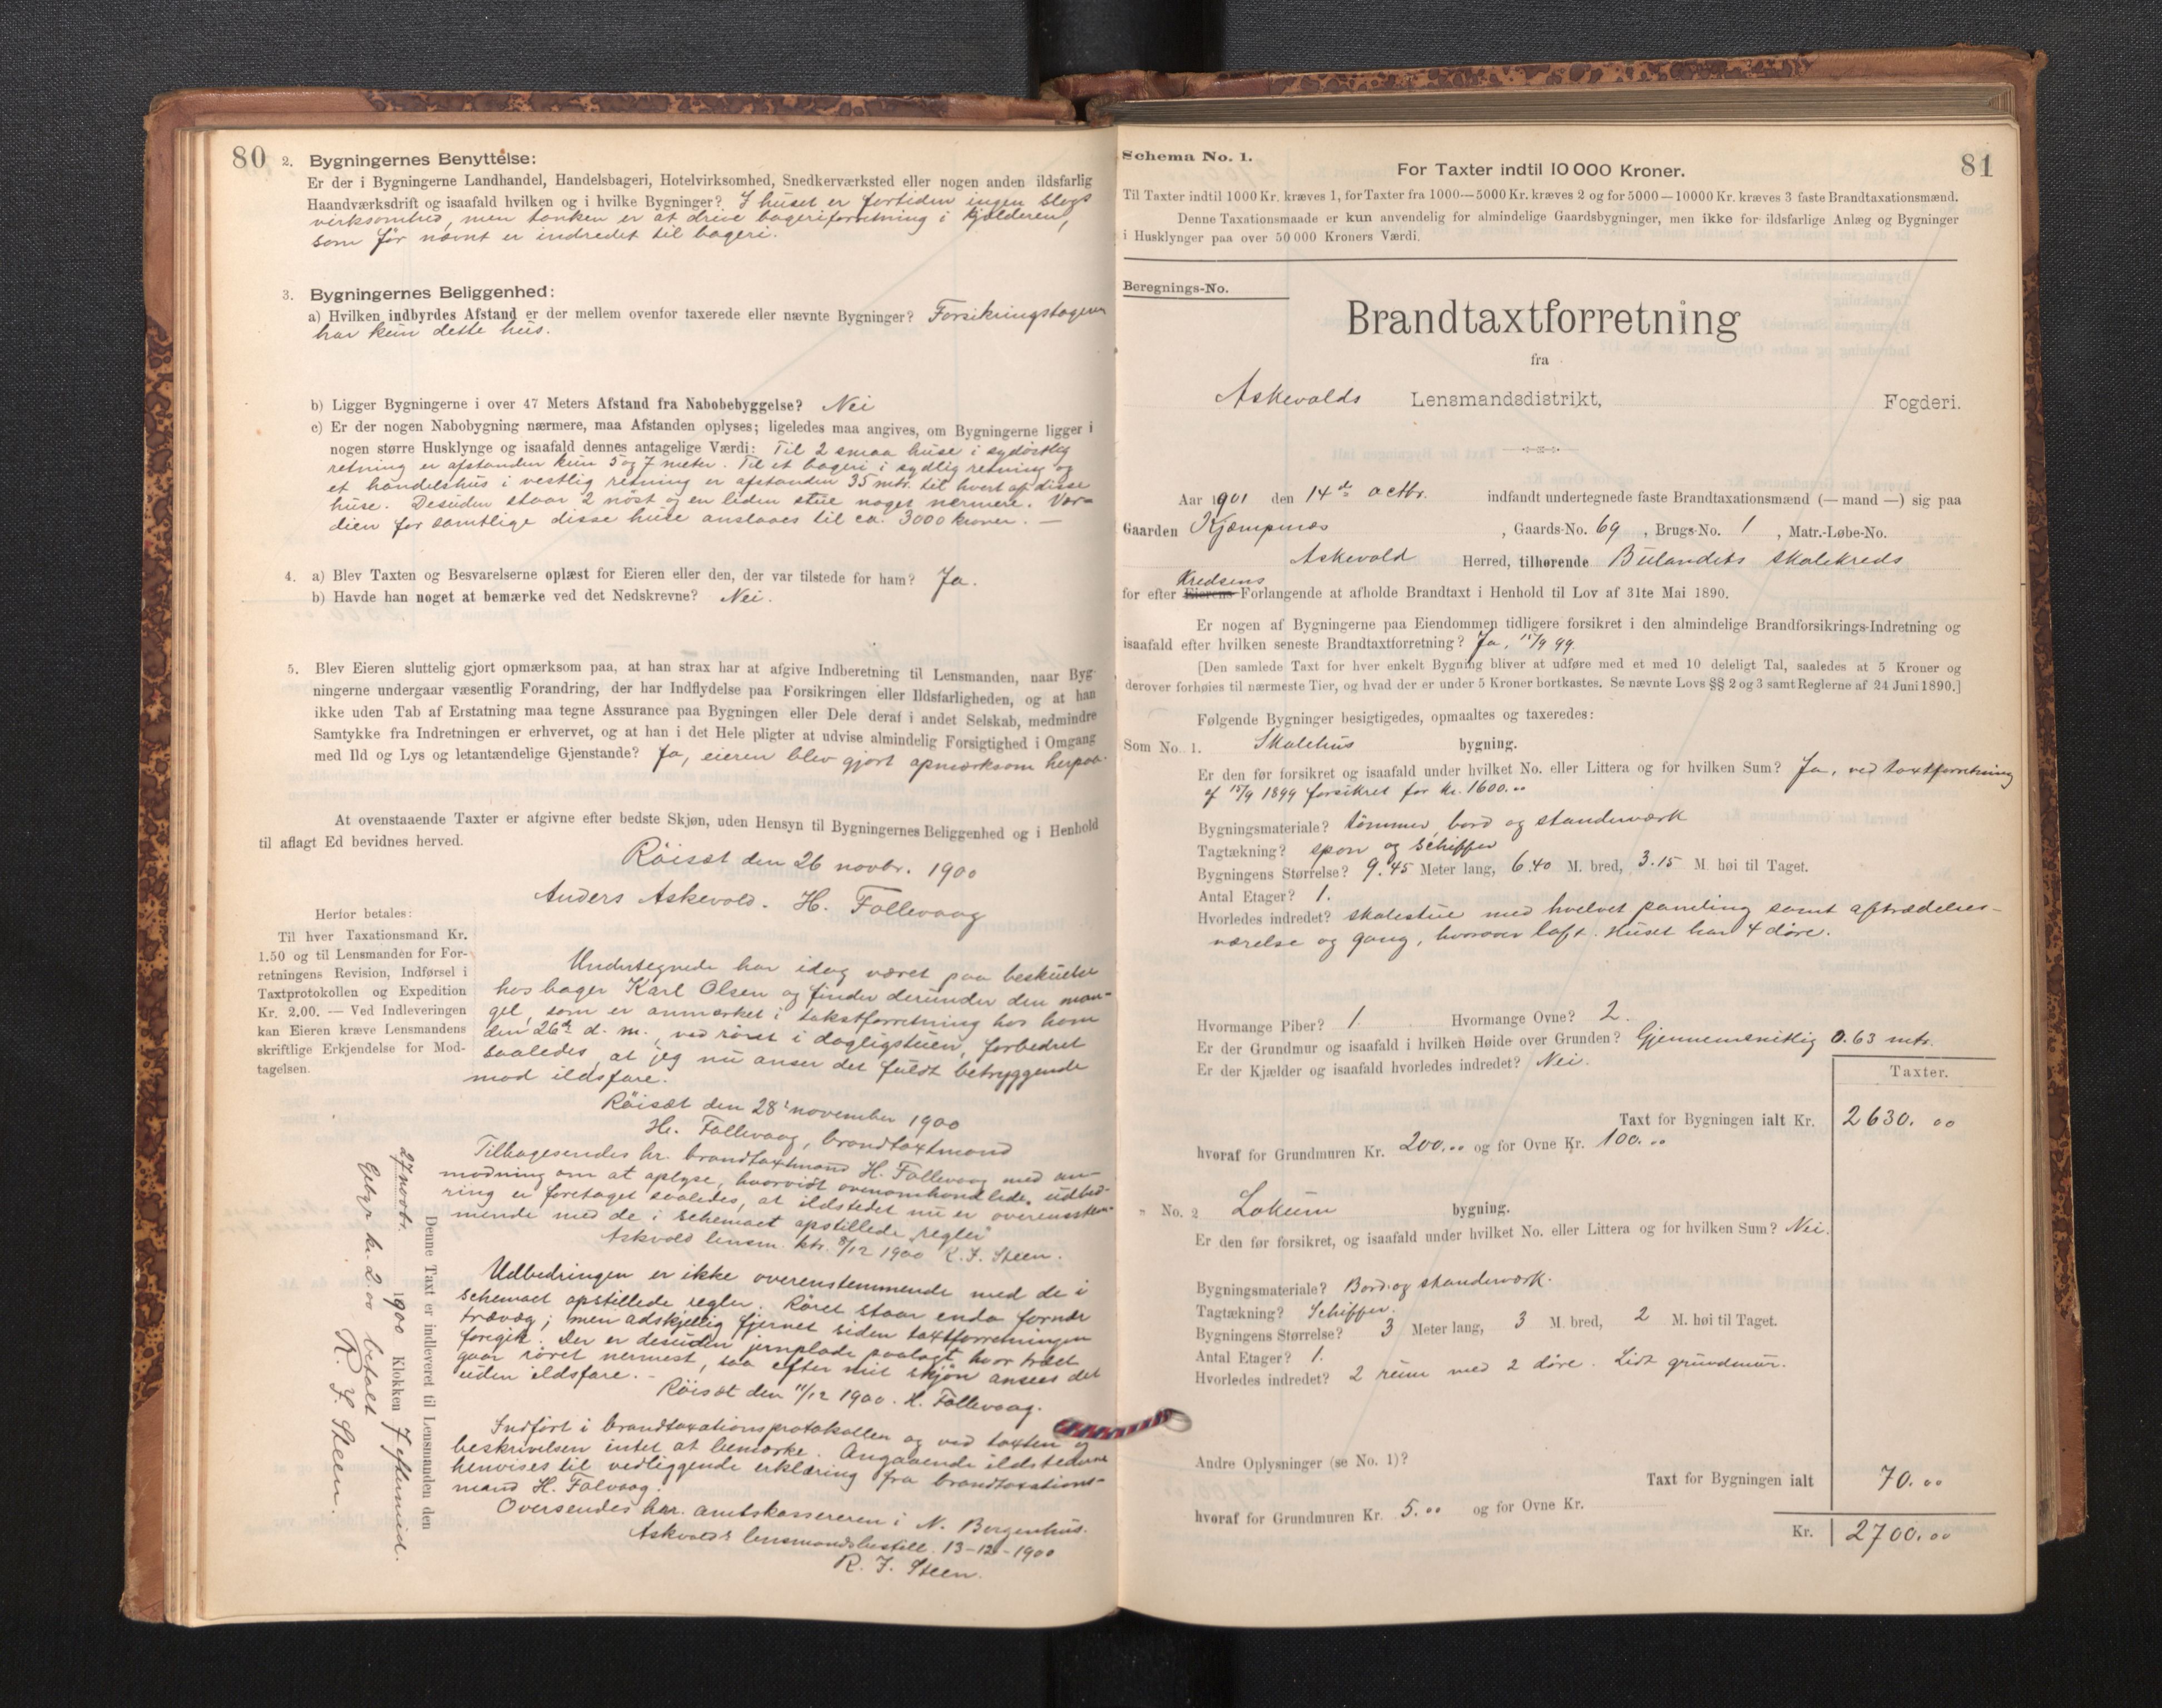 80
2. Bygningernes Benyttelse:
Er der i Bygningerne Landhandel, Handelsbageri, Hotelvirksomhed, Snedkerværksted eller nogen anden ildsfarlig
Haandværksdrift og isaafald hvilken og i hvilke Bygninger? I huset er fortiden ingen slegs
virksomhed, men tanken er at drive bageriforretning i kjælderen,
som før nævnt er indredet til bageri.
3. Bygningernes Beliggenhed:
a) Hvilken indbyrdes Afstand er der mellem ovenfor taxerede eller nævnte Bygninger? Forsikringstageren
har kun dette hus.
b) Ligger Bygningerne i over 47 Meters Afstand fra Nabobebyggelse? Nei
c) Er der nogen Nabobygning nærmere, maa Afstanden oplyses; ligeledes maa angives, om Bygningerne ligger i
nogen større Husklynge og isaafald dennes antagelige Værdi: Til 2 smaa huse i sydøstlig
retning er afstanden kun 5 og 7 meter. Til et bageri i sydlig retning og
et handelshus i vestlig retning er afstanden 35 mtr. til hvert af disse
huse. Desuden staar 2 nøst og en liden stue noget nærmere. Vær-
dien for samtlige disse huse anslaaes til ca. 3000 kroner. —
4. a) Blev Taxten og Besvarelserne oplæst for Eieren eller den, der var tilstede for ham? Ja.
b) Havde han noget at bemærke ved det Nedskrevne? Nei.
5. Blev Eieren sluttelig gjort opmærksom paa, at han strax har at afgive Indberetning til Lensmanden, naar Byg-
ningerne undergaar væsentlig Forandring, der har Indflydelse paa Forsikringen eller Ildsfarligheden, og at han
ikke uden Tab af Erstatning maa tegne Assurance paa Bygningen eller Dele deraf i andet Selskab, medmindre
Samtykke fra Indretningen er erhvervet, og at han i det Hele pligter at udvise almindelig Forsigtighed i Omgang
med Ild og Lys og letantændelige Gjenstande? Ja, eieren blev gjort opmærksom herpaa.
At ovenstaaende Taxter er afgivne efter bedste Skjøn, uden Hensyn til Bygningernes Beliggenhed og i Henhold
til aflagt Ed bevidnes herved.
Røiset den 26 novbr. 1900
Anders Askevold. H. Follevaag
Herfor betales:
Til hver Taxationsmand Kr.
1.50 og til Lensmanden for For-
retningens Revision, Indførsel i
Taxtprotokollen og Expedition
Kr. 2.00. — Ved Indleveringen
kan Eieren kræve Lensmandens
skriftlige Erkjendelse for Mod-
tagelsen.
Undertegnede har idag været paa beskuelse
hos bager Karl Olsen og finder derunder den man-
gel, som er anmærket i takstforretning hos ham
den 26de d. m., ved røret i dagligstuen, forbedret
saaledes, at jeg nu anser det fuldt betryggende
mod ildsfare.
Røiset den 28 november 1900
H. Follevaag, brandtaxtmand
Tilbagesendes hr. brandtaxtmand H. Follevaag med an-
modning om at oplyse, hvorvidt ovenomhandlede udbed-
ring er foretaget saaledes, at ildstedet nu er overensstem-
mende med de i schemaet opstillede „regler"
Askvold lensm. ktr. 8/12 1900 R. F. Steen.
Udbedringen er ikke overenstemmende med de i
schemaet opstillede regler. Røret staar enda fornær
trævæg; men adskjellig fjernet siden taxtforretningen
foregik. Der er desuden jernplade paalagt hvor træet
gaar røret nærmest, saa efter mit skjøn ansees det
uden ildsfare. –
Røiset den 11/12 1900. H. Follevaag.
Indført i brandtaxationsprotokollen og ved taxten og
beskrivelsen intet at bemærke. Angaaende ildstederne
henvises til vedliggende erklæring fra brandtaxations-
mand H. Folvaag.
Oversendes hr. amtskassereren i N. Bergenhus.
Askvolds lensmandsbestill. 13-12-1900
R. F. Steen.
Denne Taxt er indleveret til Lensmanden den
27 novbr. 1900 Klokken 7 eftermid.
Gebyr kr. 2.00 betalt
R. F. Steen.
81
Schema No. 1.
For Taxter indtil 10 000 Kroner.
Til Taxter indtil 1000 Kr. kræves 1, for Taxter fra 1000—5000 Kr. kræves 2 og for 5000—10000 Kr. kræves 3 faste Brandtaxationsmænd.
Denne Taxationsmaade er kun anvendelig for almindelige Gaardsbygninger, men ikke for ildsfarlige Anlæg og Bygninger
i Husklynger paa over 50 000 Kroners Værdi.
Beregnings-No.
Brandtaxtforretning
fra
Askevolds Lensmandsdistrikt, Fogderi.
Aar 1901 den 14de octbr. indfandt undertegnede faste Brandtaxationsmænd (— mand —) sig paa
Gaarden Kjempenes, Gaards-No. 69, Brugs-No. 1, Matr.-Løbe-No.
Askevold Herred, tilhørende Bulandets skolekreds
Kredsens
for efter Eierens Forlangende at afholde Brandtaxt i Henhold til Lov af 31te Mai 1890.
Er nogen af Bygningerne paa Eiendommen tidligere forsikret i den almindelige Brandforsikrings-Indretning og
isaafald efter hvilken seneste Brandtaxtforretning? Ja, 15/9 99.
[Den samlede Taxt for hver enkelt Bygning bliver at udføre med et med 10 deleligt Tal, saaledes at 5 Kroner og
derover forhøies til nærmeste Tier, og hvad der er under 5 Kroner bortkastes. Se nævnte Lovs §§ 2 og 3 samt Reglerne af 24 Juni 1890.]
Følgende Bygninger besigtigedes, opmaaltes og taxeredes:
Som No. 1. Skolehus bygning.
Er den før forsikret og isaafald under hvilket No. eller Littera og for hvilken Sum? Ja, ved taxtforretning
af 15/9 1899 forsikret for kr. 1600.00
Bygningsmateriale? tømmer, bord og standerværk
Tagtækning? spon og schiffer
Bygningens Størrelse? 9.45 Meter lang, 6.40 M. bred, 3.15 M. høi til Taget.
Antal Etager? 1.
Hvorledes indredet? skolestue med hvelvet paneling samt aftrædelses-
værelse og gang, hvorover loft. Huset har 4 døre.
Hvormange Piber? 1. Hvormange Ovne? 2.
Er der Grundmur og isaafald i hvilken Høide over Grunden? Gjennemsnitlig 0.63 mtr.
Er der Kjælder og isaafald hvorledes indredet? Nei.
Taxter.
Taxt for Bygningen ialt Kr. 2630.00
hvoraf for Grundmuren Kr. 200.00 og for Ovne Kr. 100.00
" No. 2 Lokum bygning.
Er den før forsikret, og isaafald under hvilket No. eller Littera og for hvilken Sum? Nei.
Bygningsmateriale? Bord og standerværk.
Tagtækning? Schiffer.
Bygningens Størrelse? 3 Meter lang, 3 M. bred, 2 M. høi til Taget.
Antal Etager? 1.
Hvorledes indredet? 2 rum med 2 døre. Lidt grundmur.
Andre Oplysninger (se No. 1)?
Taxt for Bygningen ialt 70.00
hvoraf for Grundmuren Kr. 5.00 og for Ovne Kr.
Kr. 2700.00